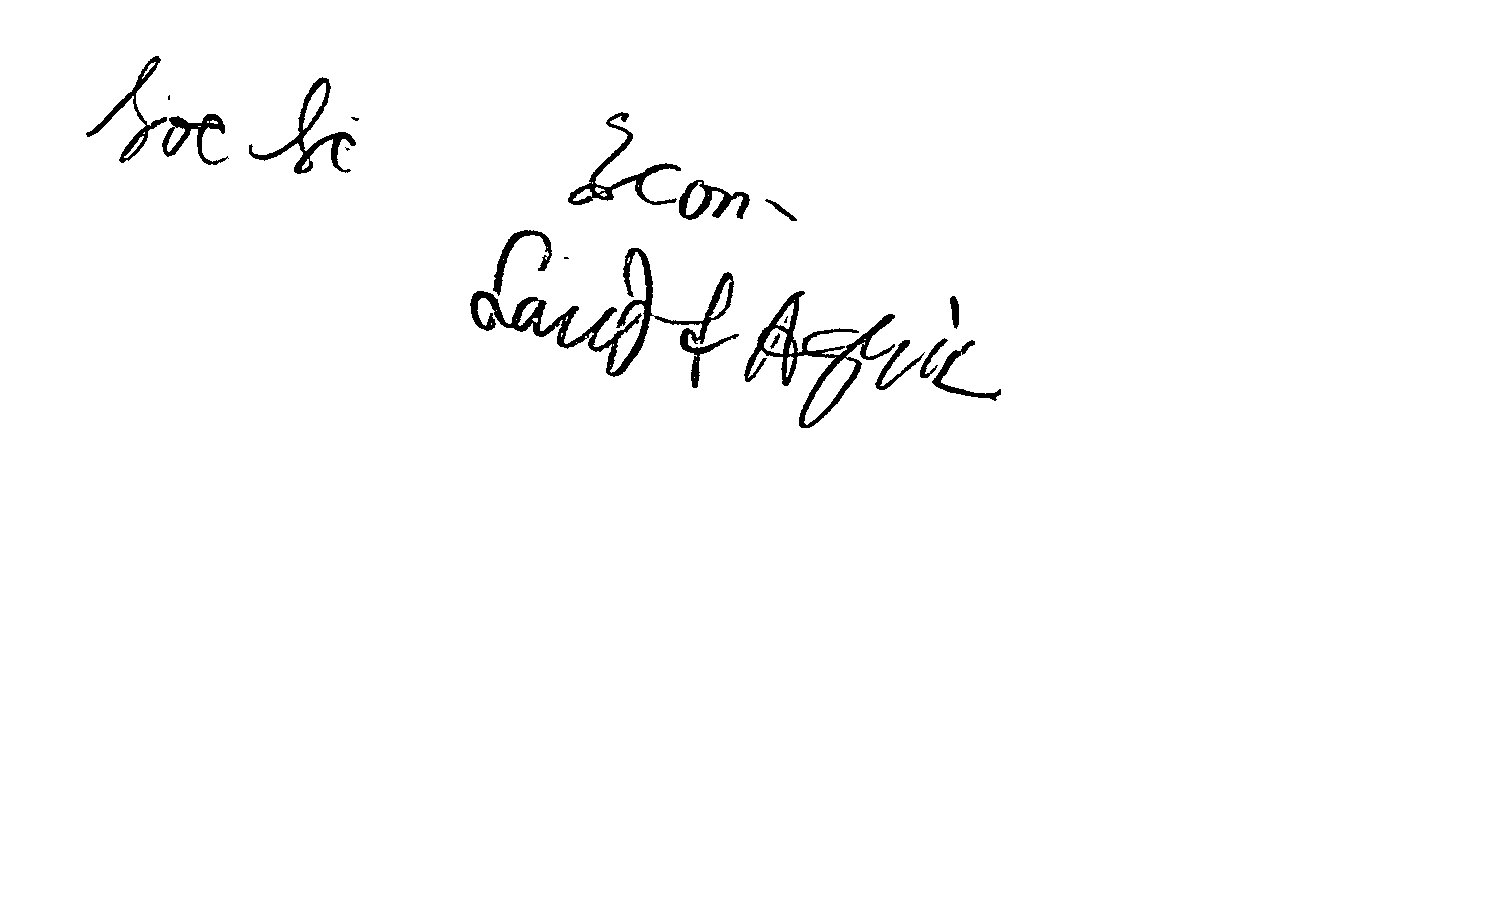 Soc Sc
Econ.
Land & Agric